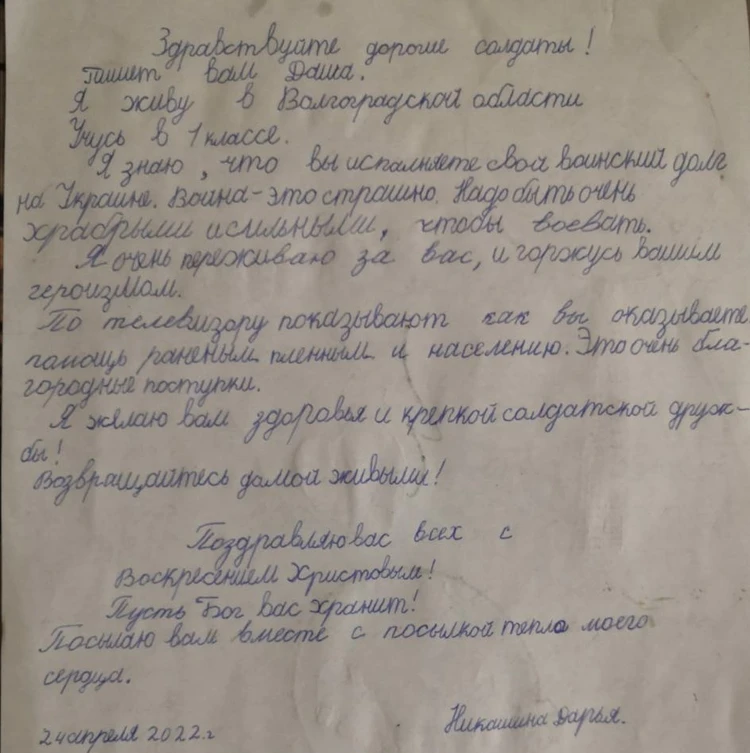 Здравствуйте дорогие солдаты!
Пишет вам Даша.
Я живу в Волгоградской области
Учусь в 1 классе.
Я знаю, что вы исполняете свой воинский долг
на Украине. Война-это страшно. Надо быть очень
храбрыми и сильными, чтобы воевать.
Я очень переживаю за вас, и горжусь вашим
героизмом.
По телевизору показывают как вы оказываете
помощь раненым пленным и населению. Это очень бла-
городные поступки.
Я желаю вам здоровья и крепкой солдатской друж-
бы!
Возвращайтесь домой живыми!
Поздравляю вас всех с
Воскресением Христовым!
Пусть Бог вас хранит!
Посылаю вам вместе с посылкой тепло моего
сердца.
24 апреля 2022.г
Никашина Дарья.